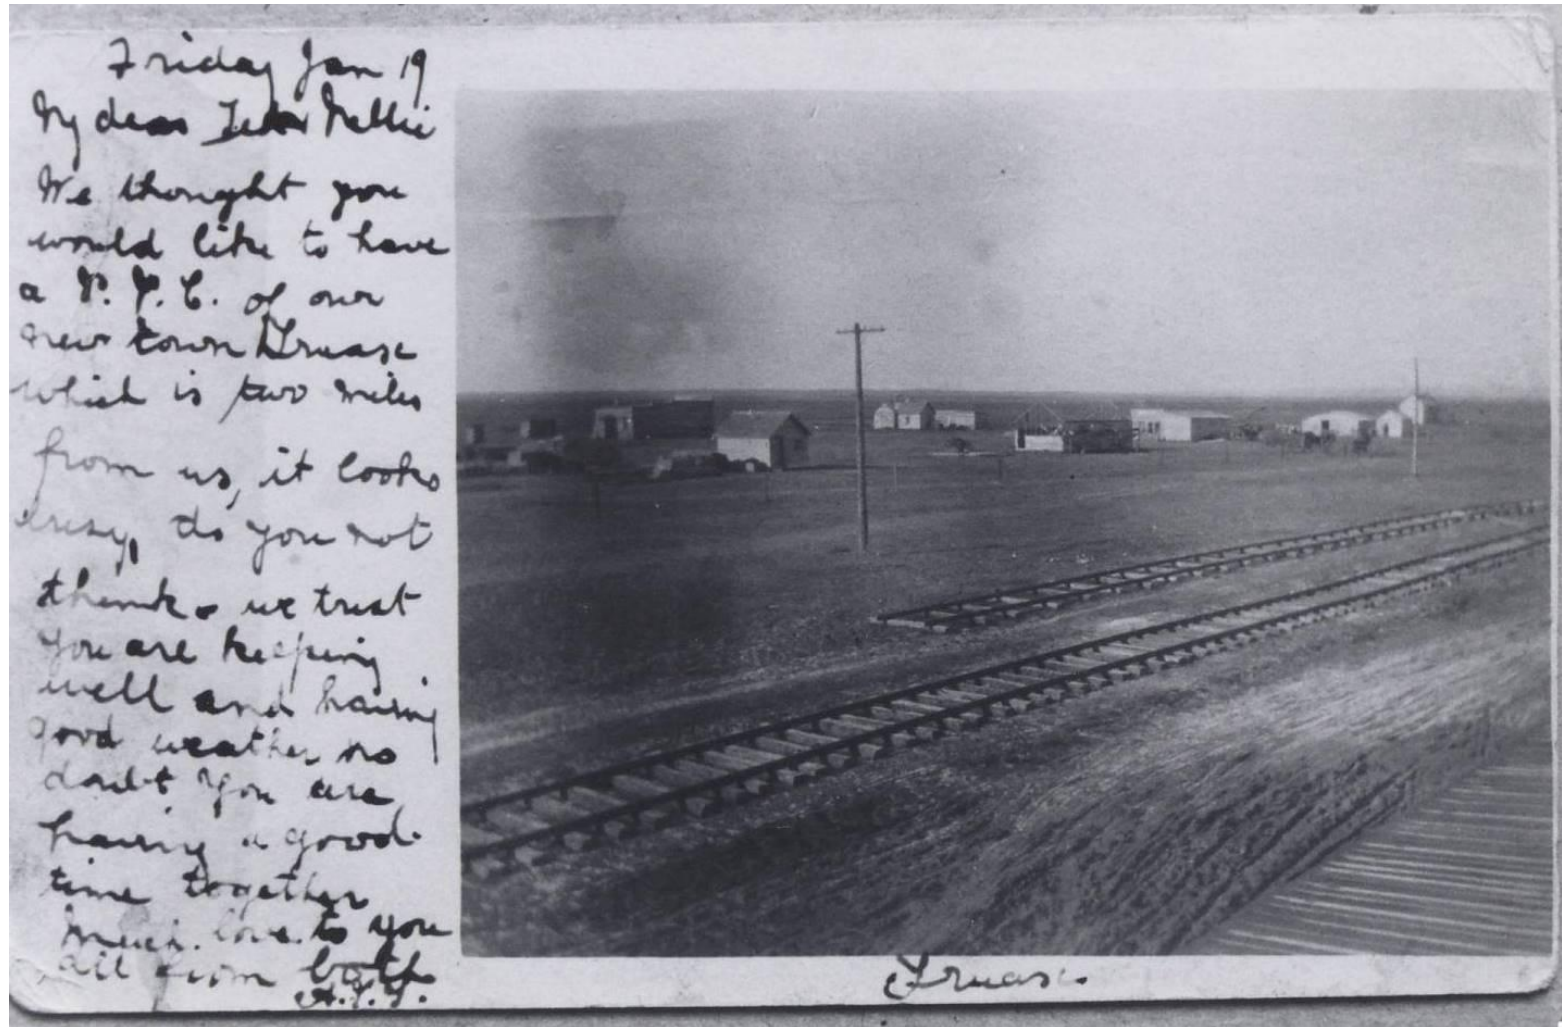 Friday Jan 19
My dear Nellie
We thought you
would like to have
a P. P. C. of our
new town Truax
which is two miles
from us, it looks
do you not
think we trust
you are keeping
well and having
good weather no
doubt you are
having a good
time together
Much love to you
all from both
Truax